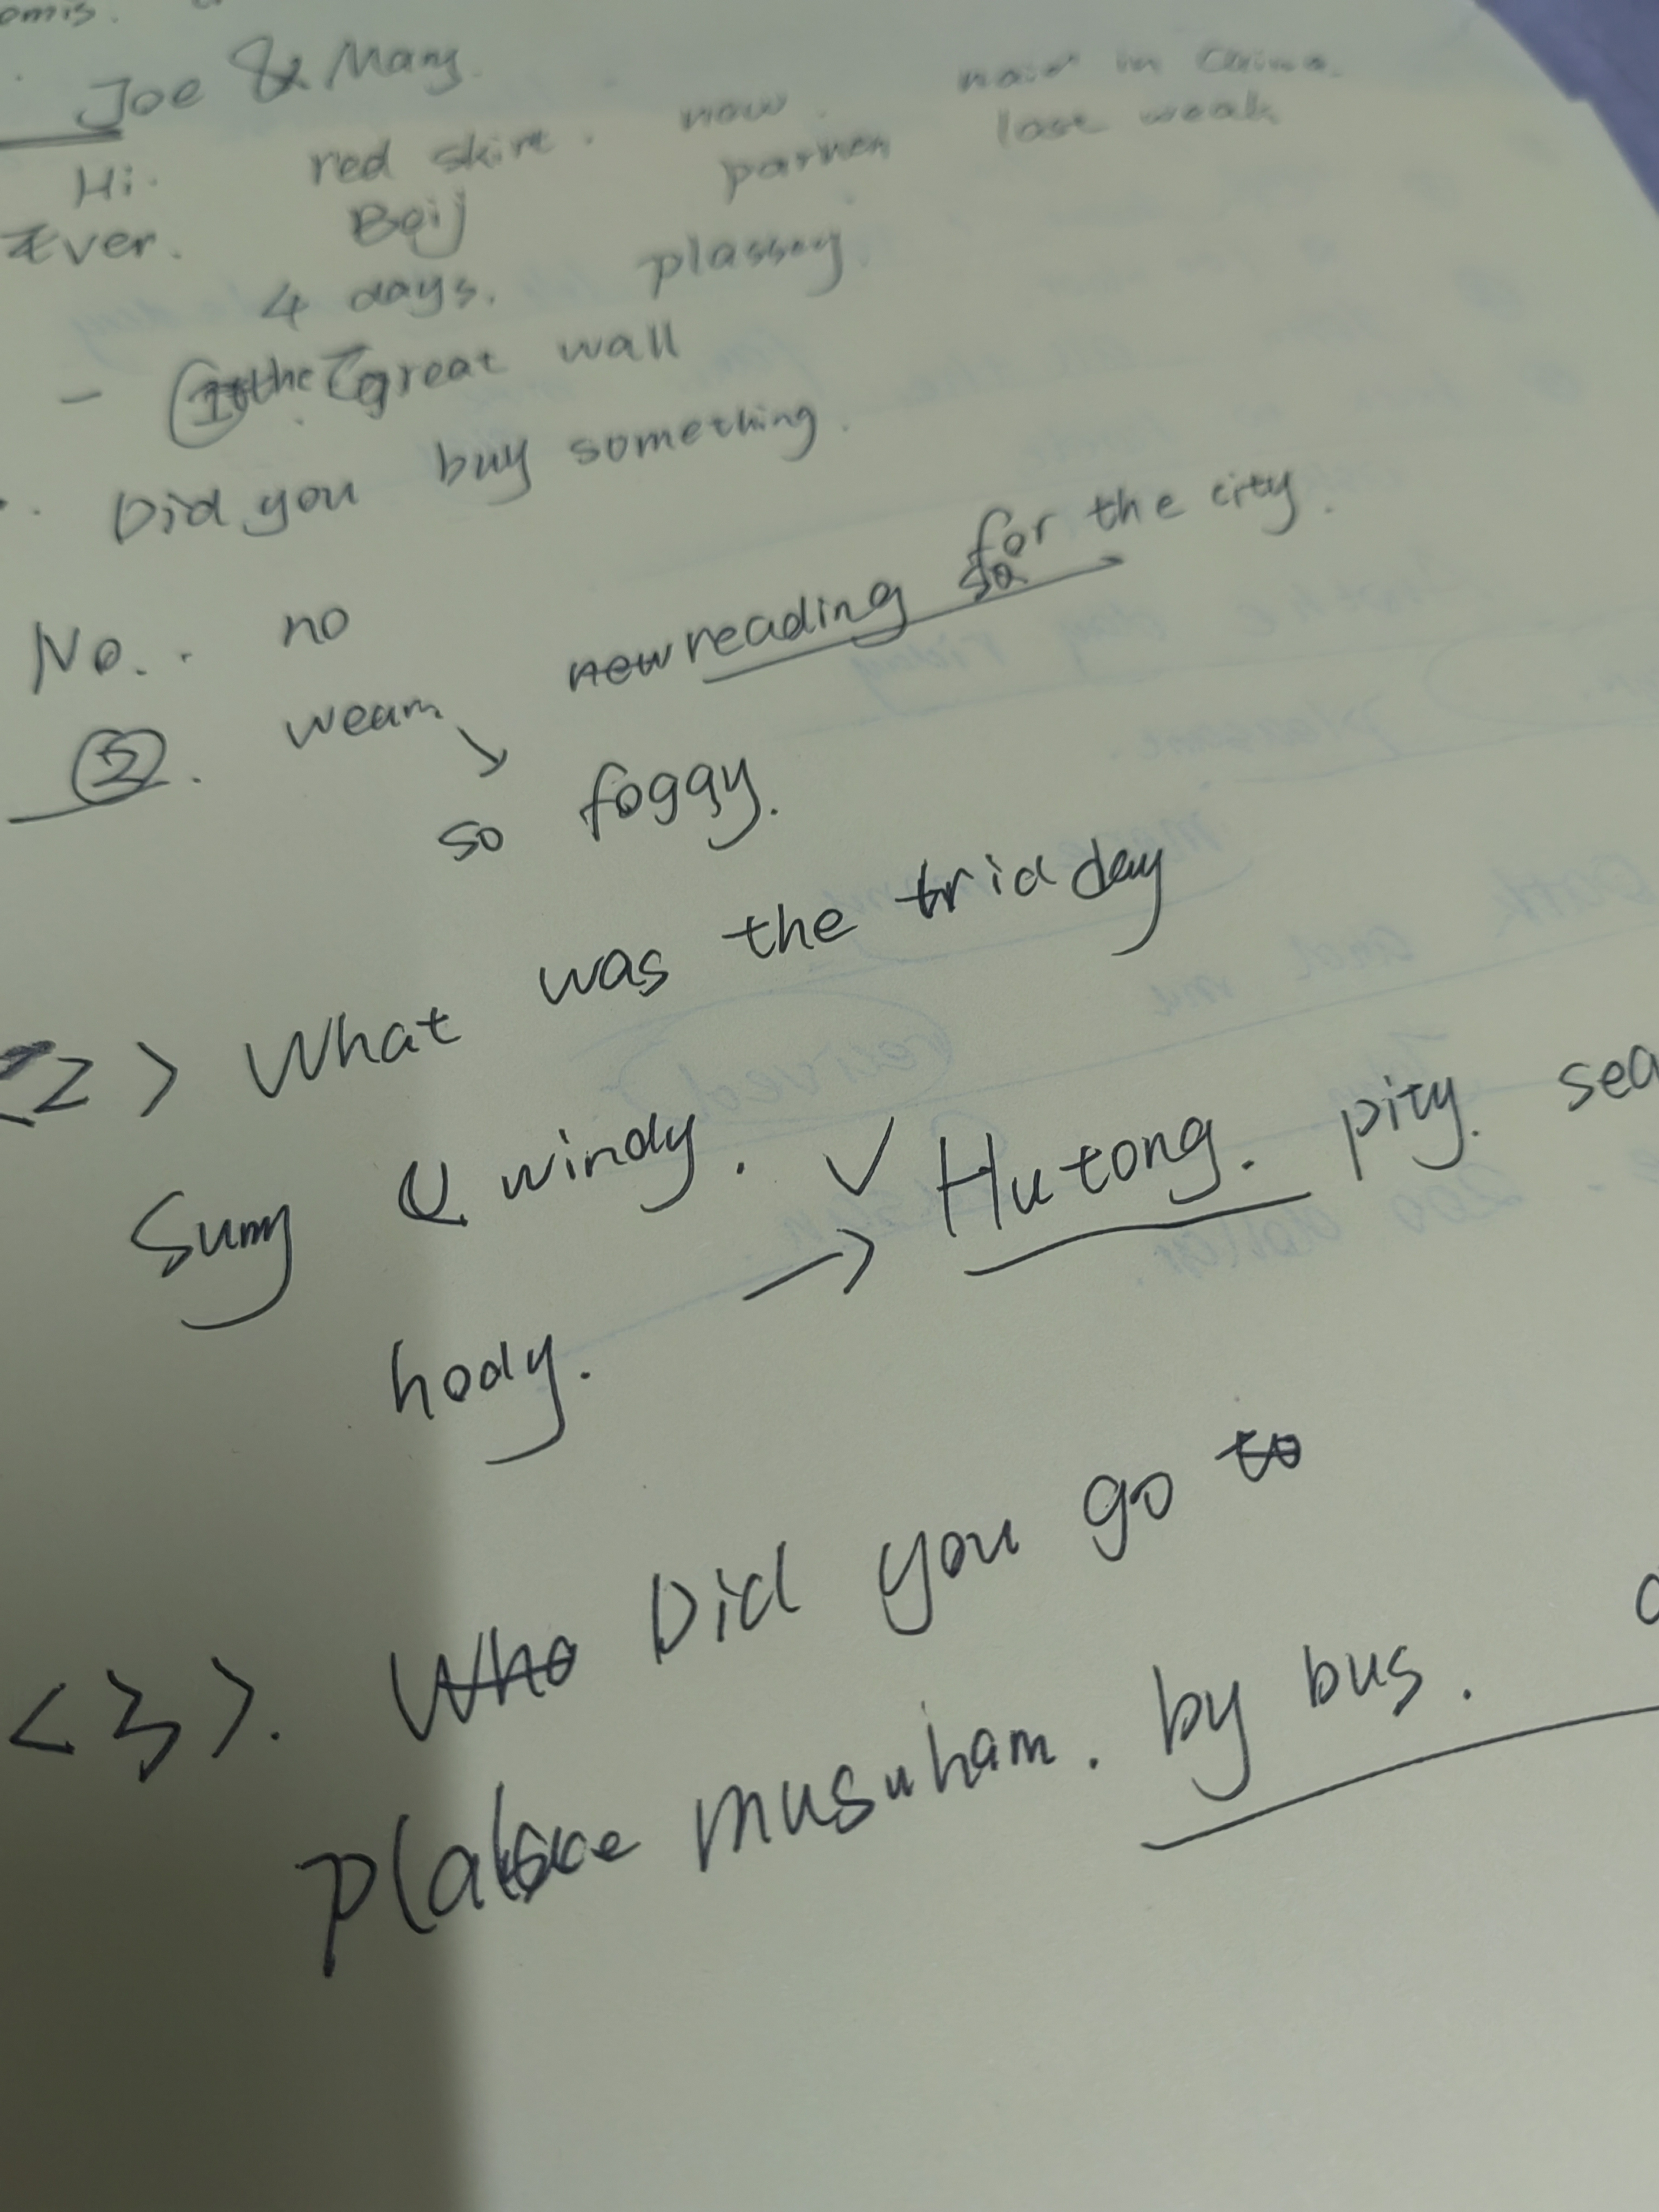 omis.
Joe & Mary.
Hi. red skirt. now. in China.
Ever. Beij parken last weak
4 days. plassey.
- the great wall
Did you buy something.
No.. no new reading for the city.
②. wearm
so foggy.
<2> What was the trid day
Sunny & windy. ✓ Hutong. pity. sea
hody. →
<3>. Who Did you go to
musuham. by bus.